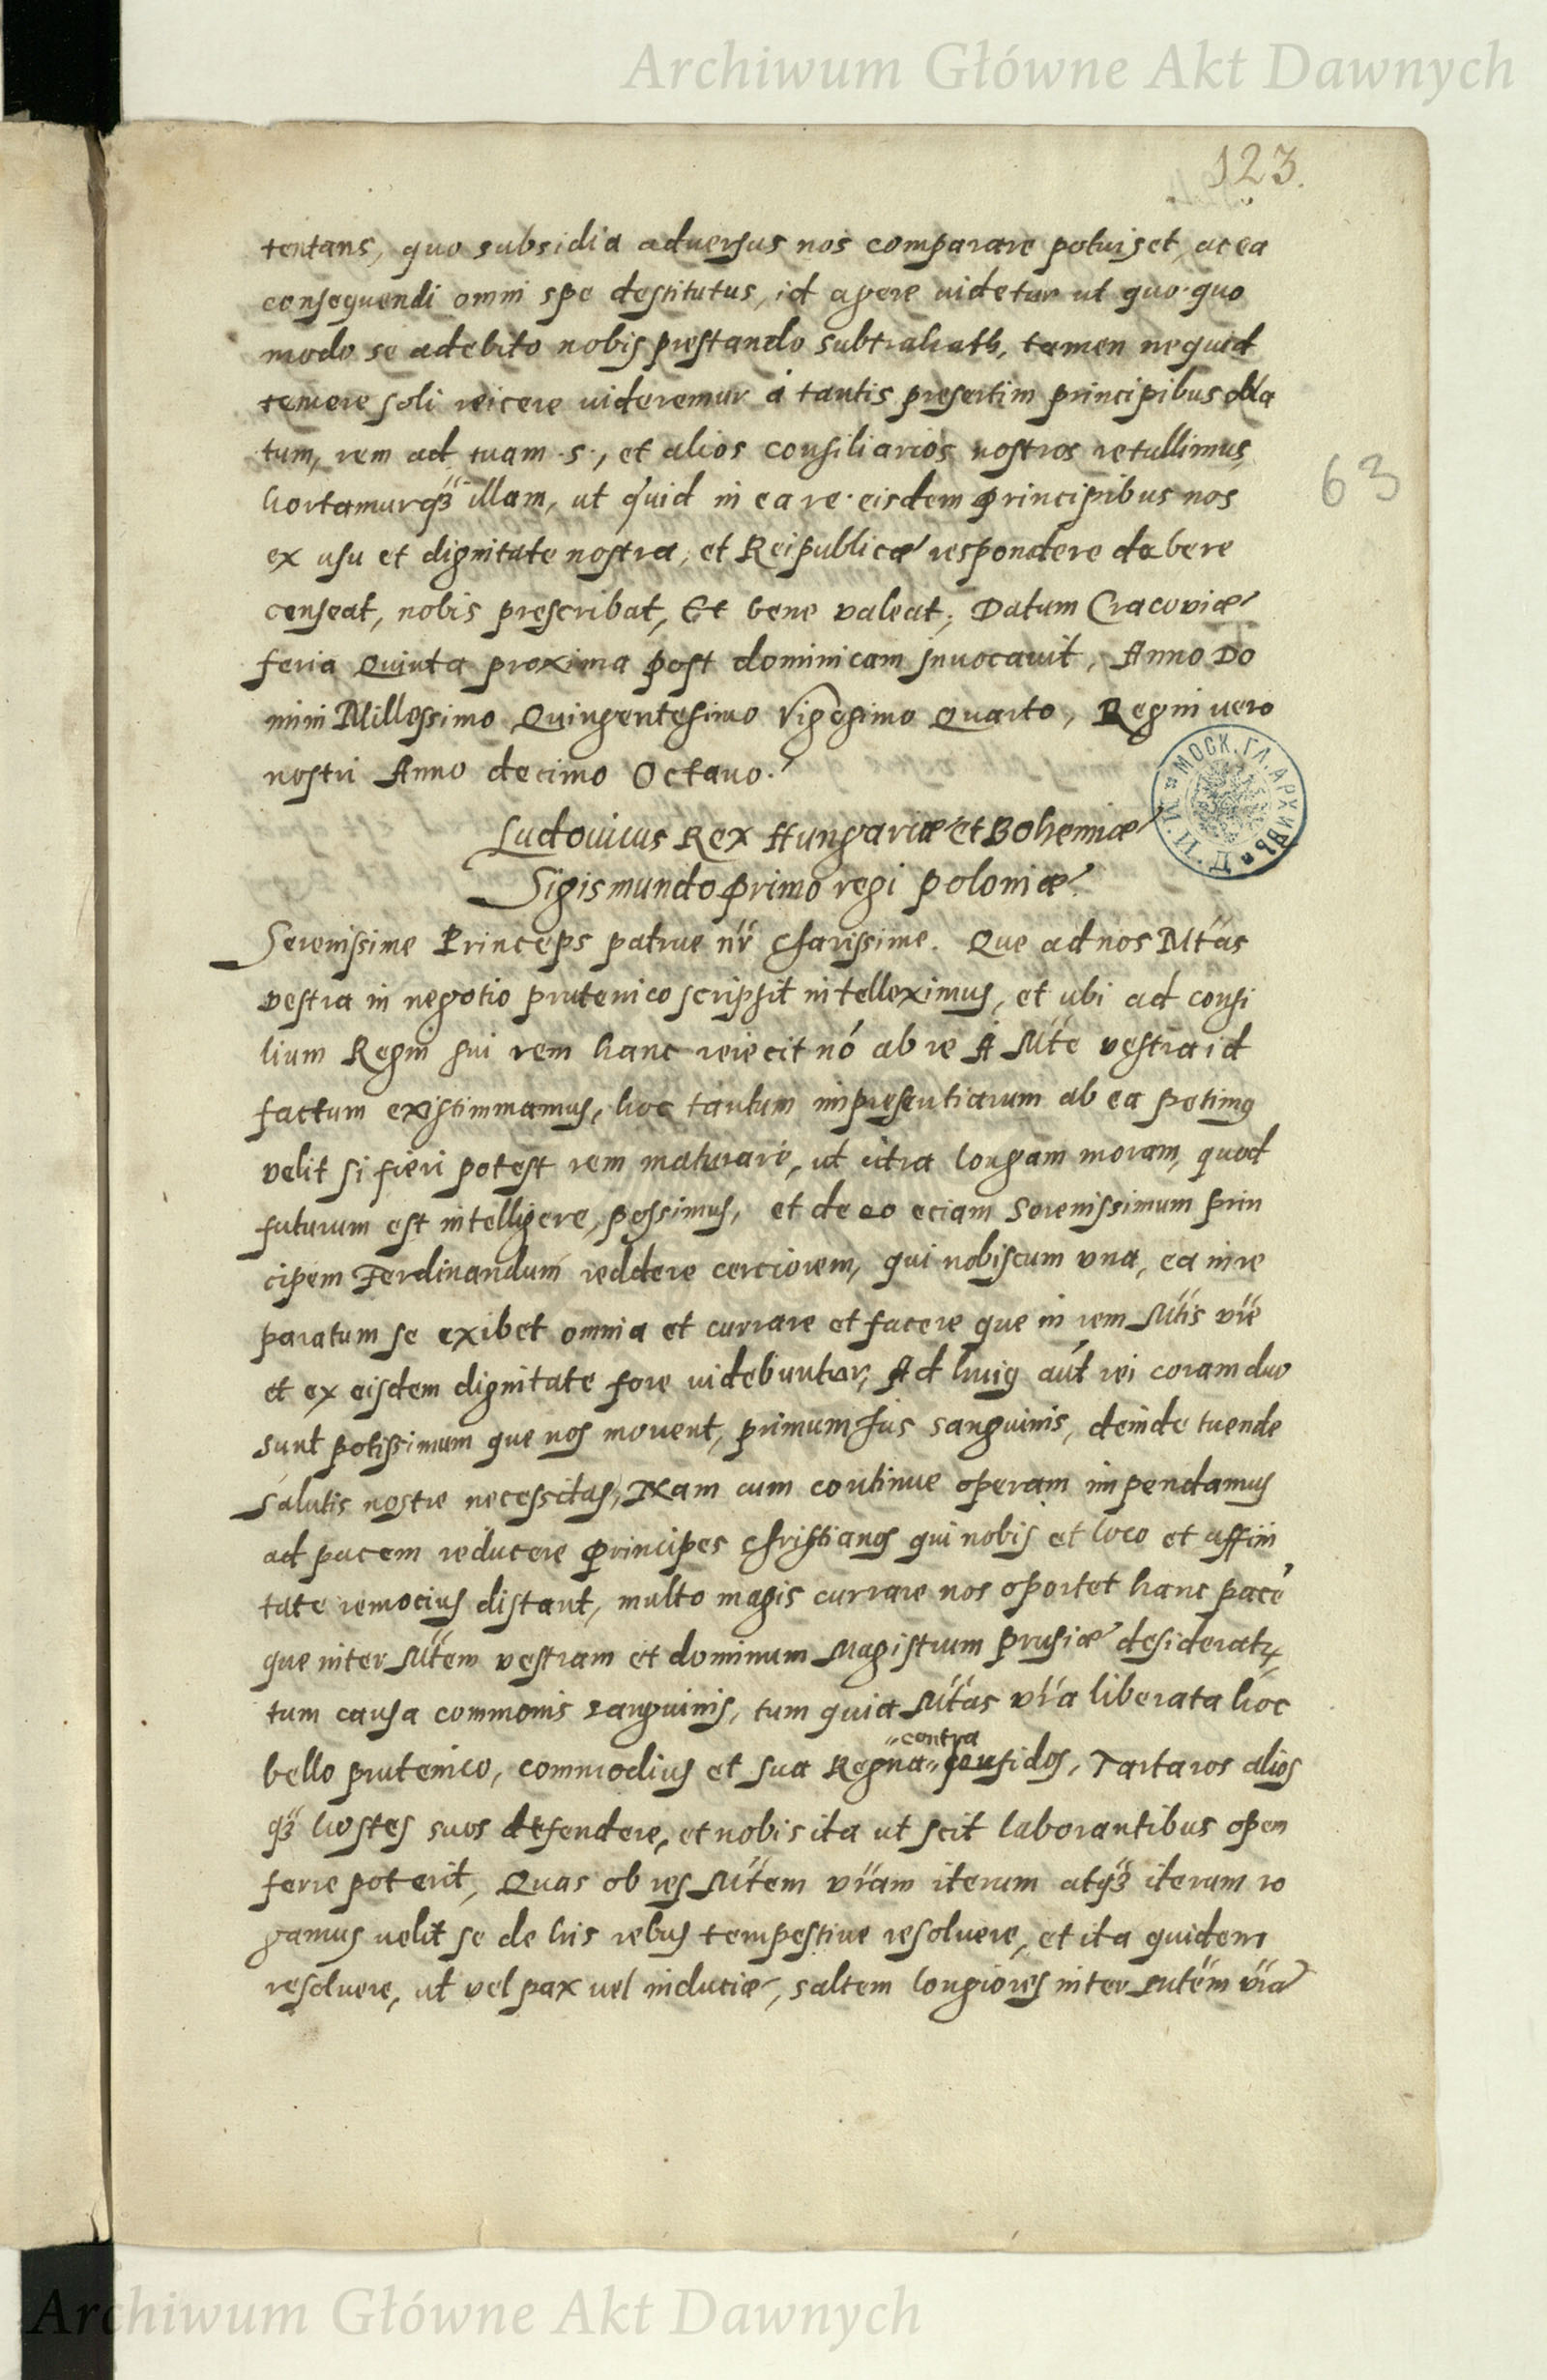 Archiwum Główne Akt Dawnych
123.
tentans, quo subsidia aduersus nos comparare potuiset, ac ea
consequendi omni spe destitutus, id agere uidetur ut quo quo
modo se a debito nobis prestando subtrahatr, tamen ne quid
temere soli reicere uideremur á tantis presertim principibus obla
tum, rem ad tuam .s., et alios consiliarios nostros retullimus,
63
hortamurq₃ illam, ut quid in ea re eisdem principibus nos
ex usu et dignitate nostra, et Reipublicæ respondere debere
censeat, nobis prescribat, Et bene valeat, Datum Cracoviæ
feria Quinta proxima post dominicam Inuocauit, Anno Do
mini Millessimo Quingentesimo Vigesimo Quarto, Regni uero
nostri Anno decimo Octauo.
МОСК. ГЛ. АРХИВЪ М. И. Д.
Ludouicus Rex Hungariæ et Bohemiæ
Sigismundo primo regi poloniæ
Serenissime Princeps patrue nr̃ charissime. Que ad nos Mt̃as
vestra in negotio prutenico scripsit intelleximus, et ubi ad consi
lium Regni sui rem hanc reiecit nó ab re A Mt̃e vestra id
factum existimmamus, hoc tantum inpresentiarum ab ea petimꝰ
velit si fieri potest rem maturare, ut citra longam moram, quod
futurum est intelligere, possimus, et de eo eciam Serenissimum prin
cipem Ferdinandum reddere cerciorem, qui nobiscum vna, ea in re
paratum se exibet omnia et currare et facere que in rem Mt̃is vr̃e
et ex eisdem dignitate fore uidebuntur, Ad huiꝰ aut̃ rei coram duo
sunt potissimum que nos mouent, primum Ius sanguinis, deinde tuende
Salutis nostre necessitas, Nam cum continue operam impendamus
ad pacem reducere principes christianos qui nobis et loco et affini
tate remocius distant, multo magis currare nos oportet hanc pacẽ
que inter Mt̃em vestram et dominum Magistrum prusiæ desideratr,
tum causa commonis sanguinis, tum quia Mt̃as vr̃a liberata hoc
contra
bello prutenico, commodius et sua Regna confidos, Tartaros alios
q₃ hostes suos defendere, et nobis ita ut scit laborantibus opem
ferre poterit, Quas ob res Mt̃em vr̃am iterum atq₃ iterum ro
gamus uelit se de his rebus tempestiue resoluere, et ita quidem
resoluere, ut vel pax uel induciæ, saltem longiores inter Mt̃em vr̃ã
Archiwum Główne Akt Dawnych